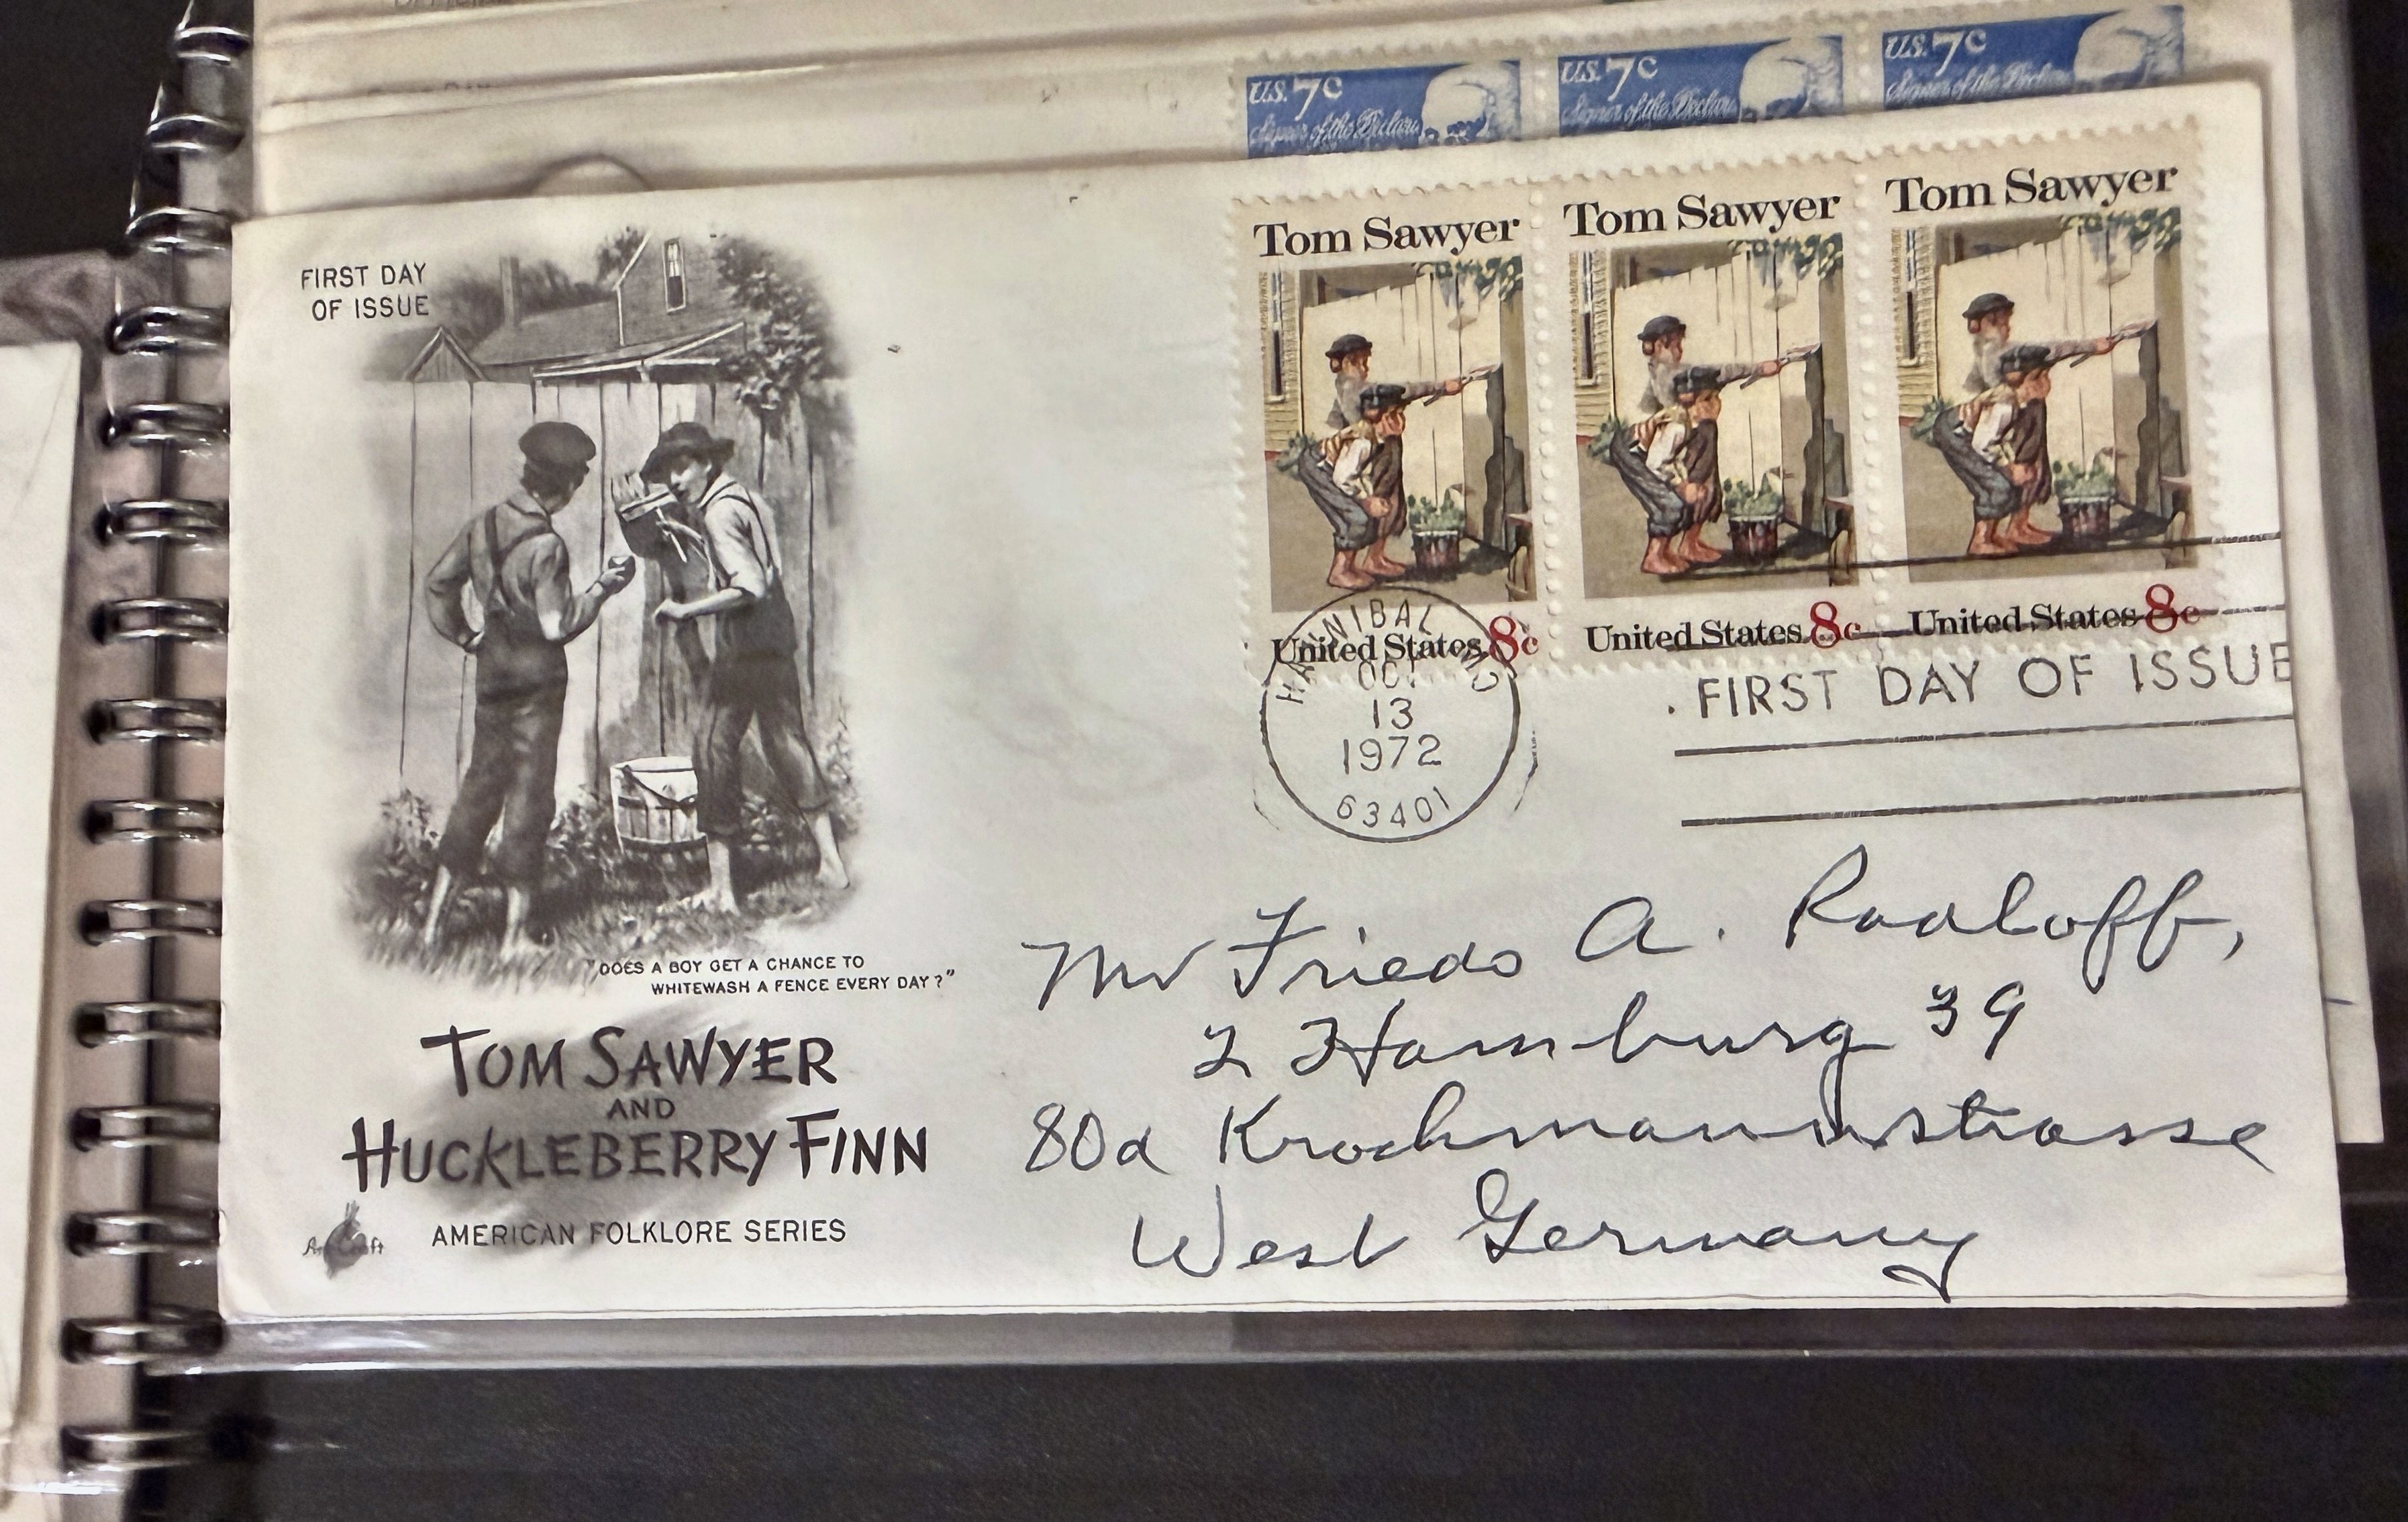 U.S. 7c U.S. 7c U.S. 7c
Signer of the Declara Signer of the Declara Signer of the Declara
FIRST DAY
OF ISSUE
Tom Sawyer Tom Sawyer Tom Sawyer
United States 8c United States 8c United States 8c
HANNIBAL MO
OCT
13
1972
63401
FIRST DAY OF ISSUE
"DOES A BOY GET A CHANCE TO
WHITEWASH A FENCE EVERY DAY?"
TOM SAWYER
AND
HUCKLEBERRY FINN
ArtCraft
AMERICAN FOLKLORE SERIES
Mr Friedo A. Raaloff,
2 Hamburg 39
80a Krochmannstrasse
West Germany